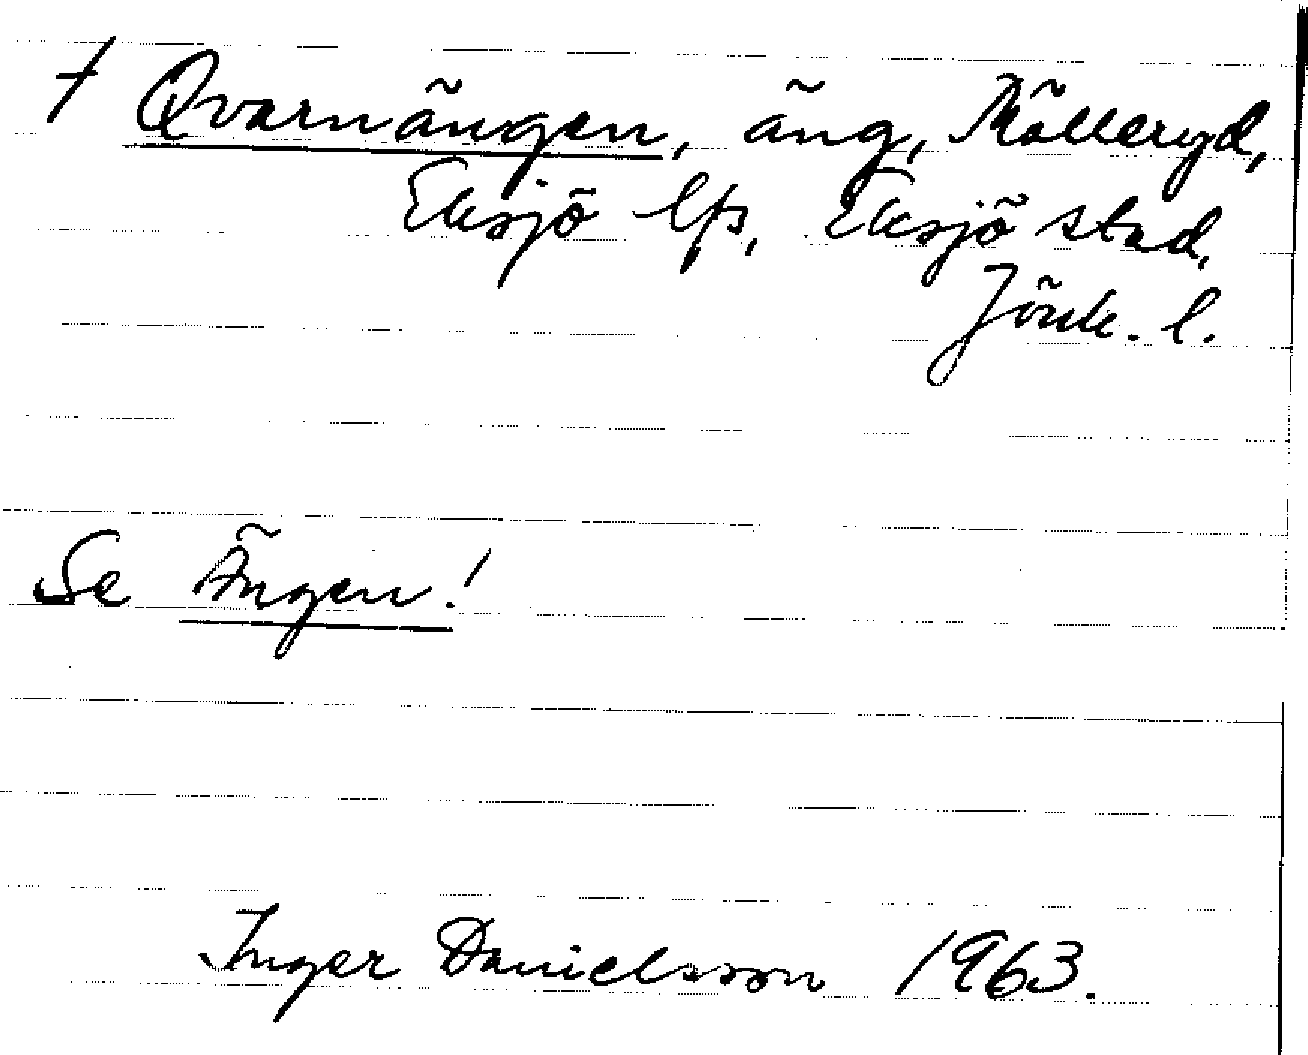 † Qvarnängen, äng, Mölleryd,
Eksjö lfs, Eksjö stad,
Jönk. l.
Se Ängen!
Inger Danielsson 1963.